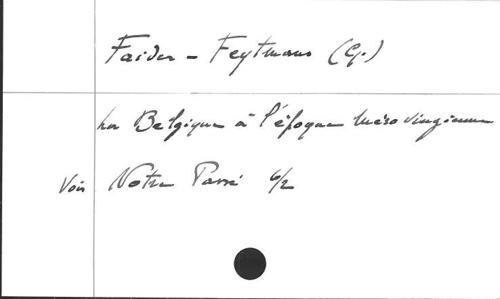 Faider-Feytmans (G.)
La Belgique à l'époque mérovingienne
Voir Notre Passé 6/2